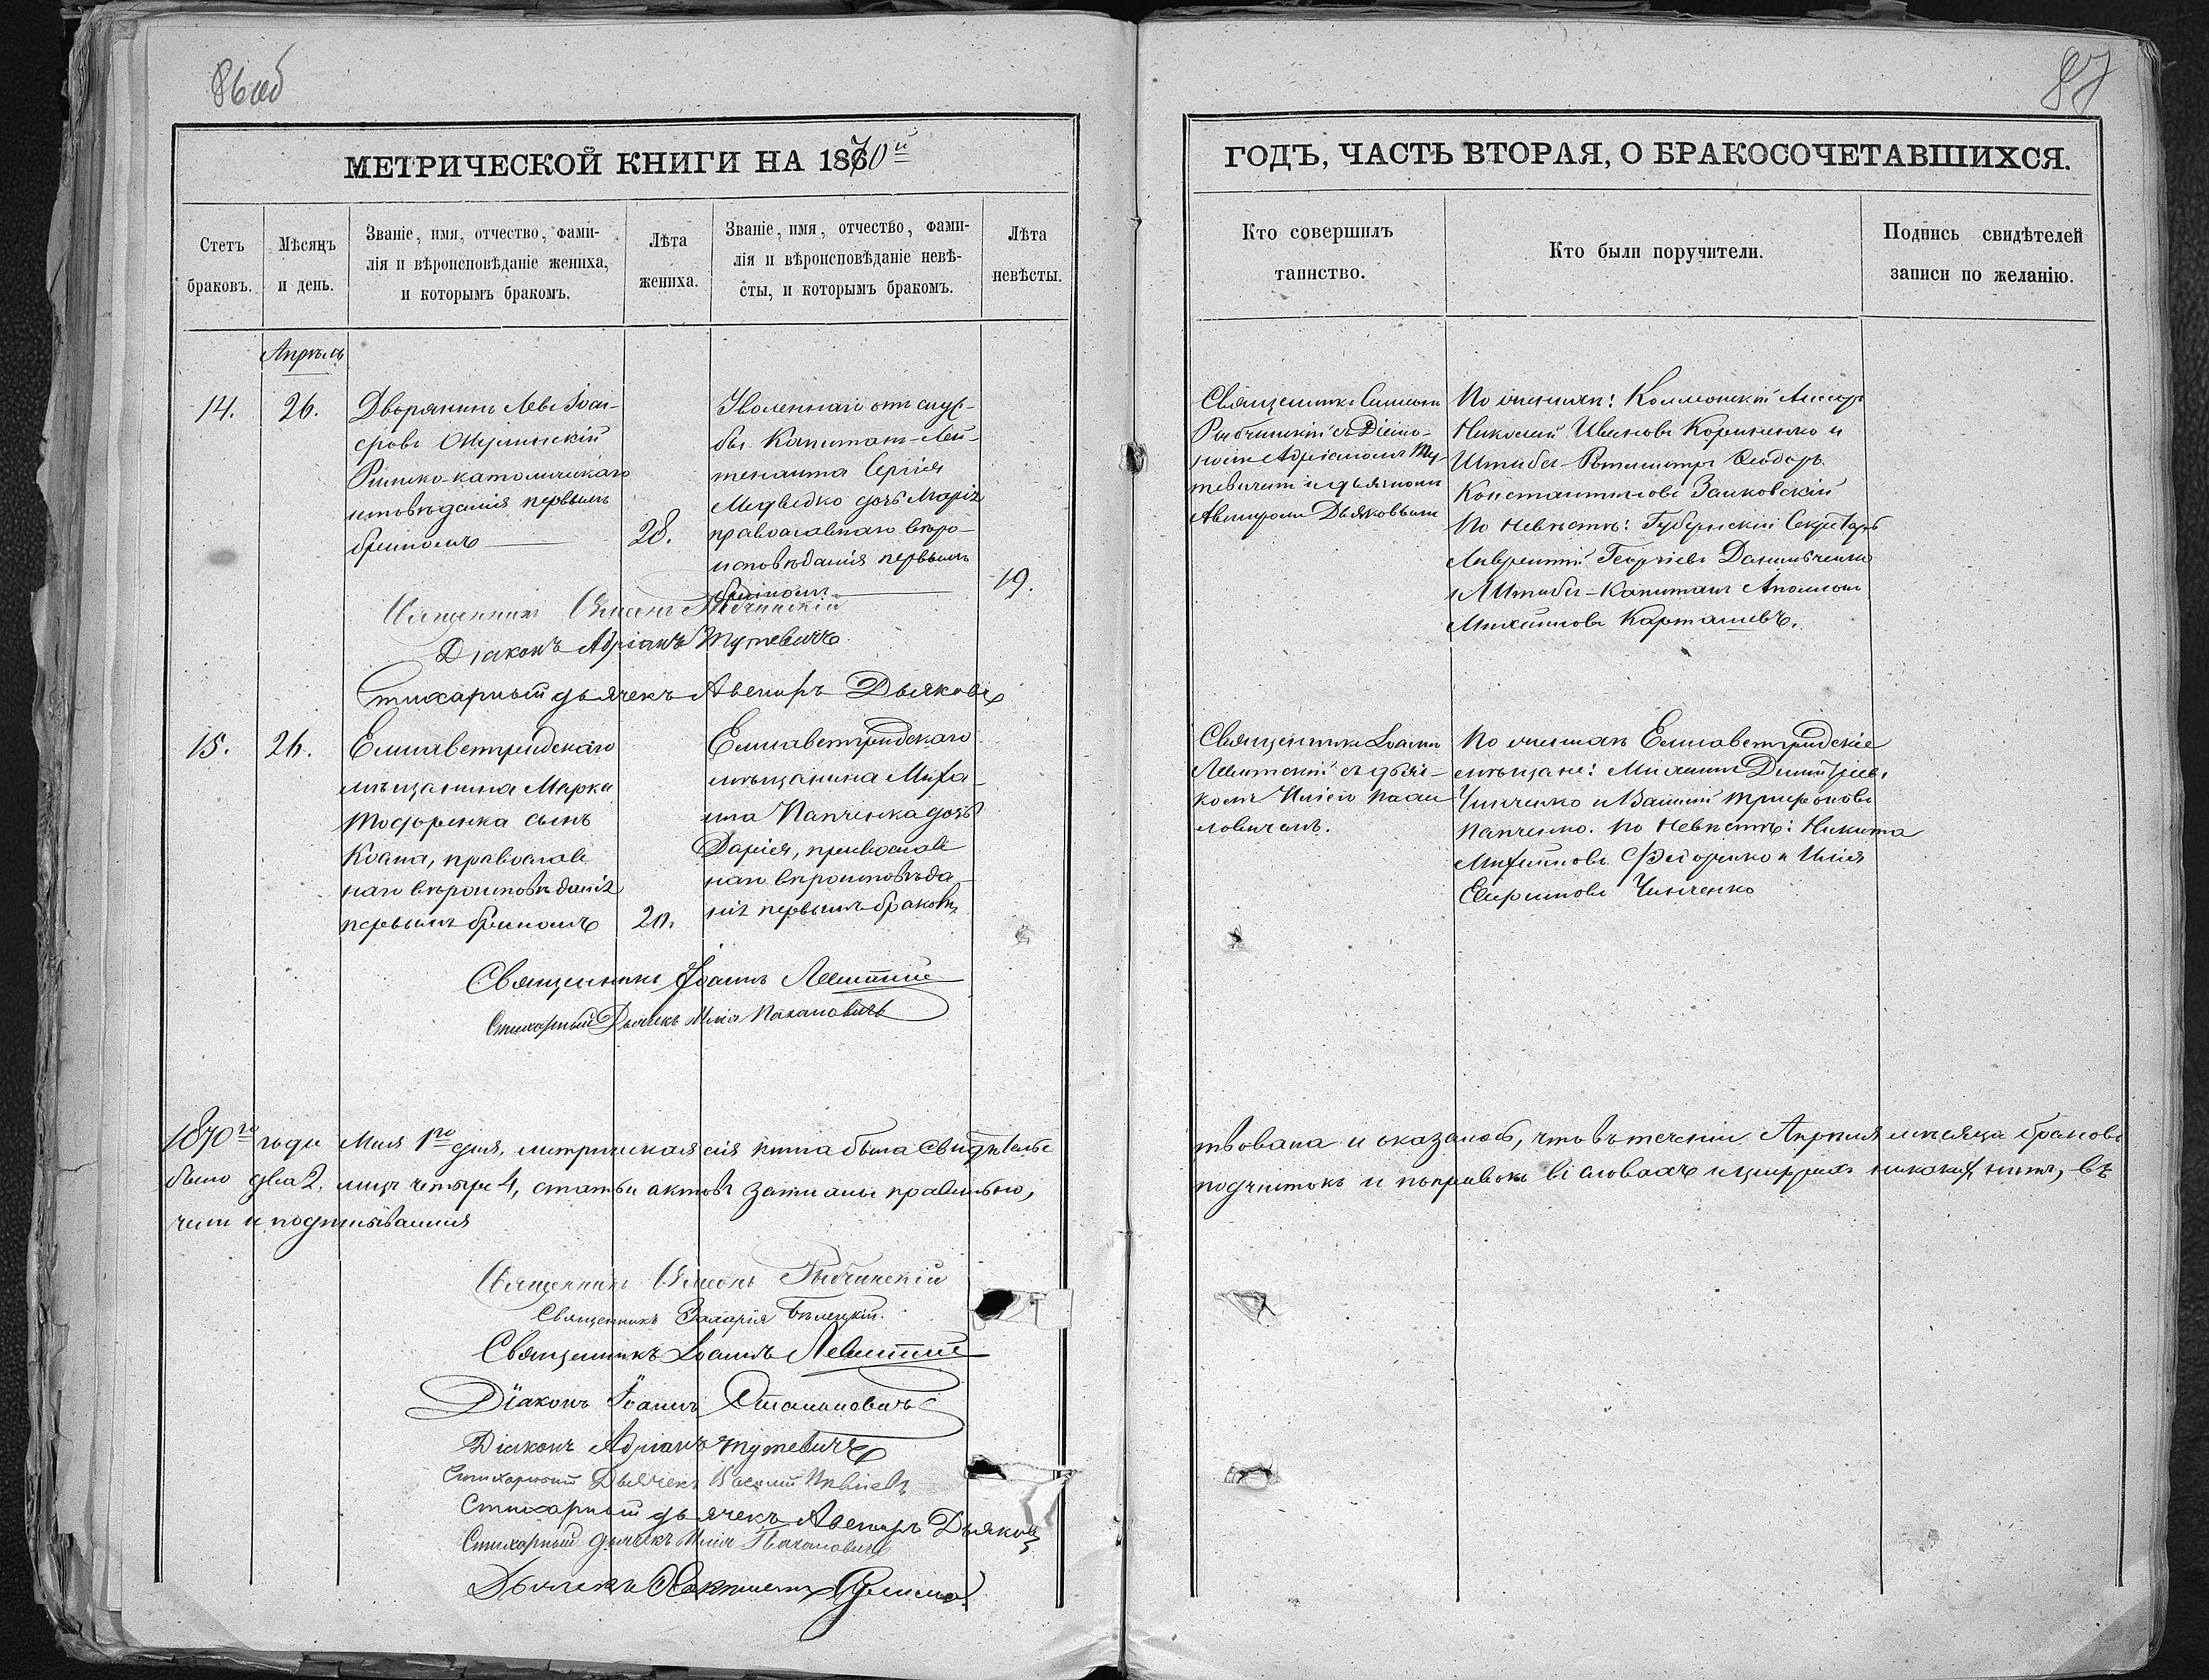 86об
87
МЕТРИЧЕСКОЙ КНИГИ НА 1870й
ГОДЪ, ЧАСТЬ ВТОРАЯ, О БРАКОСОЧЕТАВШИХСЯ.
Стетъ
браковъ.
Мѣсяцъ
и день.
Званіе, имя, отчество, фами-
лія и вѣроисповѣданіе жениха,
и которымъ бракомъ.
Лѣта
жениха.
Званіе, имя, отчество, фами-
лія и вѣроисповѣданіе невѣ-
сты, и которымъ бракомъ.
Лѣта
невѣсты.
Кто совершилъ
таинство.
Кто были поручители.
Подпись свидѣтелей
записи по желанію.
Апрѣль
14.
26.
Дворянинъ Левъ
Римско-католическаго
исповѣданія первымъ
бракомъ
28.
Уволеннаго отъ служ-
бы Капитанъ-Лей-
тенанта Сергія
Медведко дочь Марія
православнаго вѣро-
исповѣданія первымъ
бракомъ
19.
Священникъ Симеонъ
Рыбчинскій съ Діако-
номъ Адріаномъ Ту-
тевичемъ и дьячкомъ
Авениромъ Дьяковымъ
По женихѣ: Коллежскій
Николай Ивановъ Корниенко и
Штабсъ-Ротмистръ Ѳеодоръ
Константиновъ Заиковскій
По невѣстѣ: Губернскій Секретарь
Лаврентій Георгіевъ Данильченко
и Штабсъ-Капитанъ
Михайловъ Карташевъ.
Священникъ Симеонъ Рыбчинскій
Діаконъ Адріанъ Тутевичъ
Стихарный дьячекъ Авениръ Дьяковъ
15.
26.
Елисаветградскаго
мѣщанина Марка
Тодоренка сынъ
православ
наго вѣроисповѣданія
первымъ бракомъ
20.
Елисаветградскаго
мѣщанина Миха
ила Папченка дочь
Дарія, православ
наго вѣроисповѣда-
нія первымъ бракомъ
Священникъ Іоаннъ
Левитскій съ дьяч-
комъ Иліею
По женихѣ Елисаветградскіе
мѣщане: Димитріевъ
и Трифоновъ
Папченко. По невѣстѣ: Никита
Михайловъ Ѳедоренко и Илія
Священникъ Іоаннъ Левитскій
Стихарный Дьячекъ Илія
1870го года Мая 1го дня, метрическая сія книга была свидѣтельс
твована и оказалось, что въ теченіи Апрѣля мѣсяца браковъ
было два 2, лицъ четыре 4, статьи актовъ записаны правильно,
подчистокъ и поправокъ въ словахъ и цифрахъ никакихъ нѣтъ, въ
чемъ и подписываемся
Священникъ Симеонъ Рыбчинскій
Священникъ Захарія Бѣлецкій.
Священникъ Іоаннъ Левитскій
Діаконъ Іоаннъ
Діаконъ Адріанъ Тутевичъ
Стихарный Дьячекъ Василій
Стихарный дьячекъ Авениръ Дьяковъ
Стихарный дьячекъ Илія
Дьячекъ